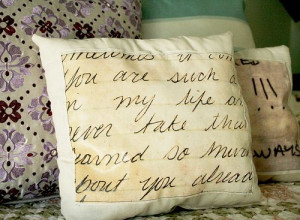 you are such a
in my life an
never take that
earned so much
bout you alread
WAYS